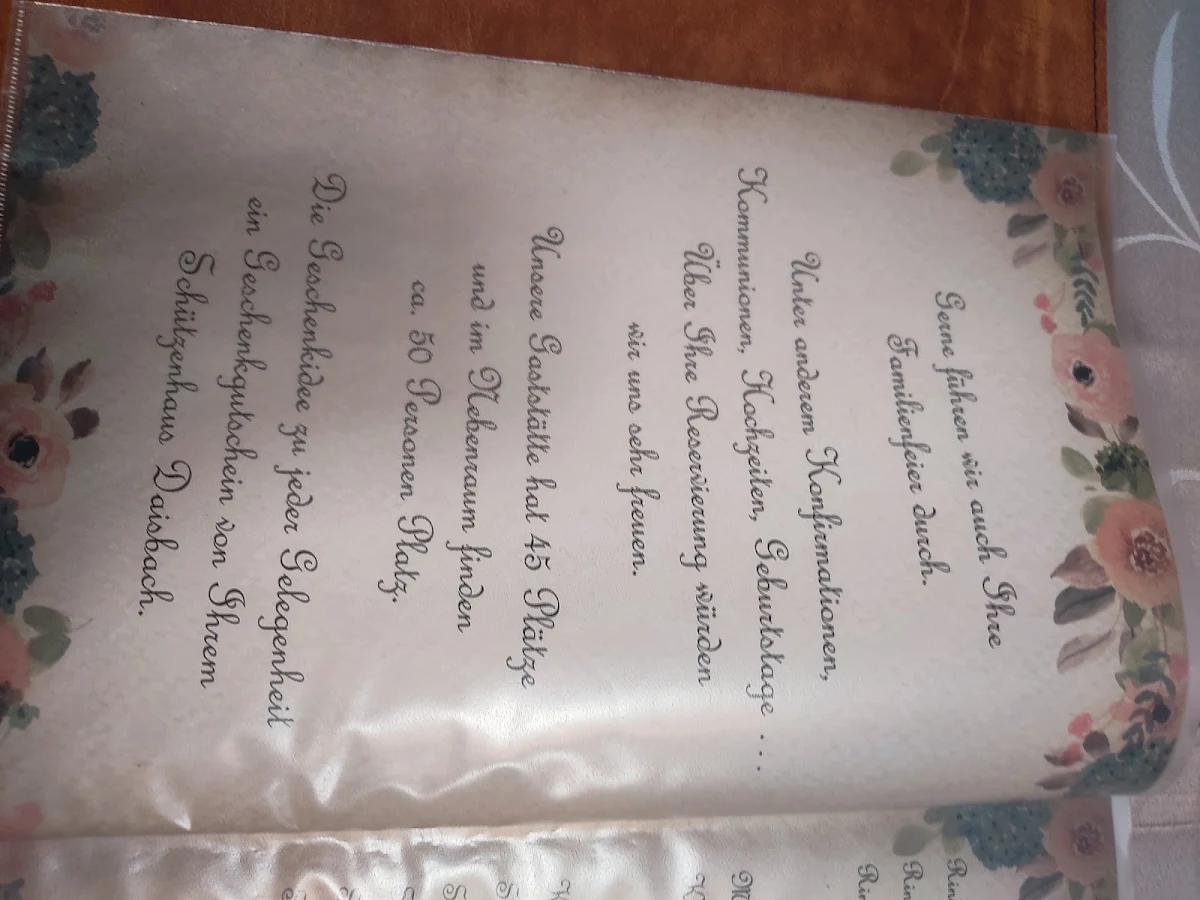 Gerne führen wir auch Ihre
Familienfeier durch.
Unter anderem Konfirmationen,
Kommunionen, Hochzeiten, Geburtstage . . .
Über Ihre Reservierung würden
wir uns sehr freuen.
Unsere Gaststätte hat 45 Plätze
und im Nebenraum finden
ca. 50 Personen Platz.
Die Geschenkidee zu jeder Gelegenheit
ein Geschenkgutschein von Ihrem
Schützenhaus Daisbach.